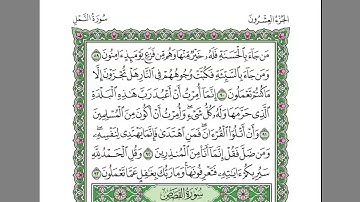 الجزء العشرون سورة النمل
من جاء بالحسنة فله خير منها وهم من فزع يومئذ ءامنون ٨٩
ومن جاء بالسيئة فكبت وجوههم في النار هل تجزون إلا
ما كنتم تعملون ٩٠ إنما أمرت أن أعبد رب هذه البلدة
الذي حرمها وله كل شيء وأمرت أن أكون من المسلمين
٩١ وأن أتلوا القرءان فمن اهتدى فإنما يهتدي لنفسه
ومن ضل فقل إنما أنا من المنذرين ٩٢ وقل الحمد لله
سيريكم ءايته فتعرفونها وما ربك بغفل عما تعملون ٩٣
سورة القصص